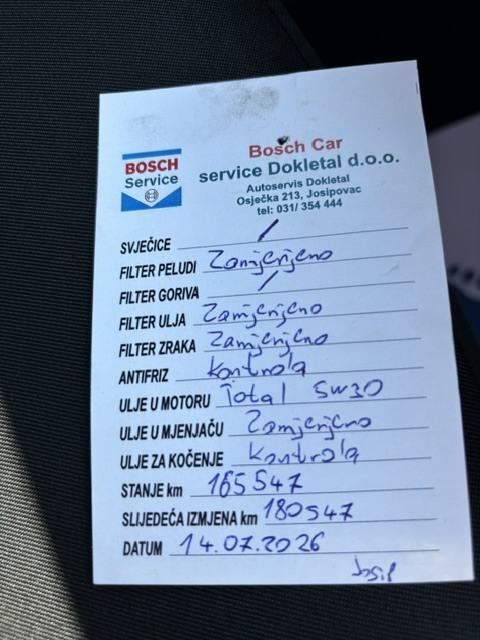 BOSCH
Service
Bosch Car
service Dokletal d.o.o.
Autoservis Dokletal
Osječka 213, Josipovac
tel: 031/ 354 444
SVJEČICE /
FILTER PELUDI Zamjenjeno
FILTER GORIVA /
FILTER ULJA Zamjenjeno
FILTER ZRAKA Zamjenjeno
ANTIFRIZ kontrola
ULJE U MOTORU Total 5W30
ULJE U MJENJAČU Zamjenjeno
ULJE ZA KOČENJE kontrola
STANJE km 165547
SLIJEDEĆA IZMJENA km 180547
DATUM 14.07.2026